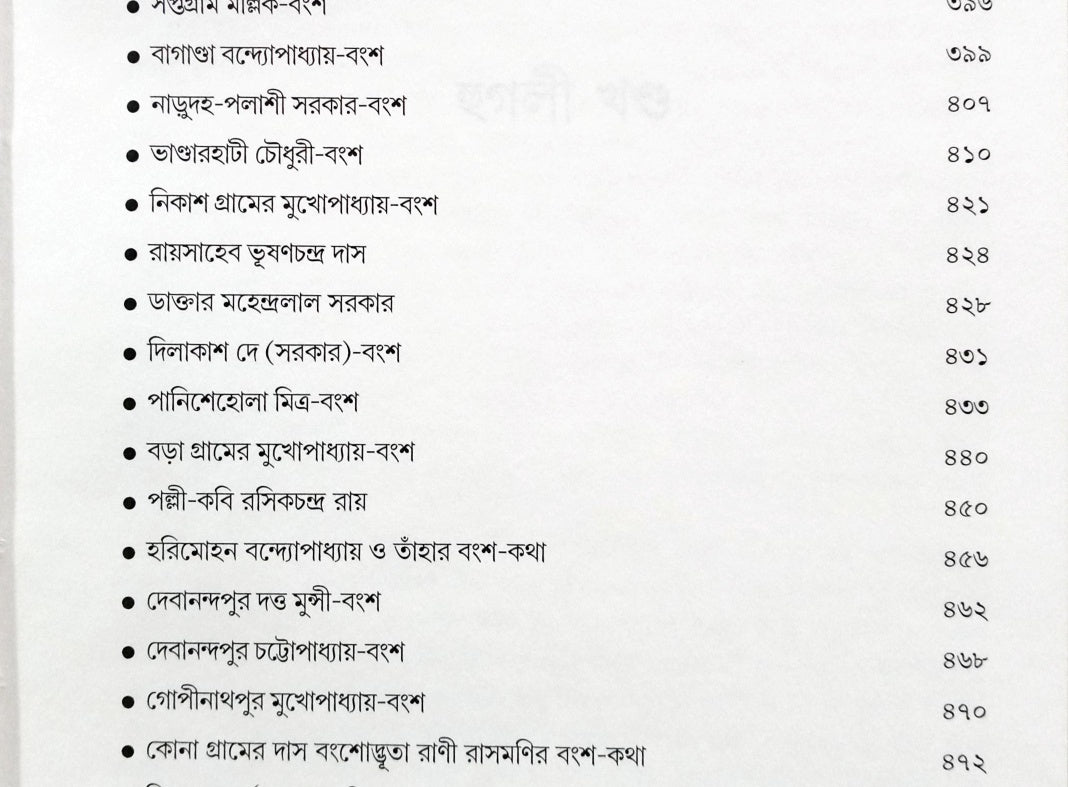 ● সপ্তগ্রাম মল্লিক-বংশ ৩৯৬
● বাগাণ্ডা বন্দ্যোপাধ্যায়-বংশ ৩৯৯
● নাড়ুদহ-পলাশী সরকার-বংশ ৪০৭
● ভাণ্ডারহাটী চৌধুরী-বংশ ৪১০
● নিকাশ গ্রামের মুখোপাধ্যায়-বংশ ৪২১
● রায়সাহেব ভূষণচন্দ্র দাস ৪২৪
● ডাক্তার মহেন্দ্রলাল সরকার ৪২৮
● দিলাকাশ দে (সরকার)-বংশ ৪৩১
● পানিশেহোলা মিত্র-বংশ ৪৩৩
● বড়া গ্রামের মুখোপাধ্যায়-বংশ ৪৪০
● পল্লী-কবি রসিকচন্দ্র রায় ৪৫০
● হরিমোহন বন্দ্যোপাধ্যায় ও তাঁহার বংশ-কথা ৪৫৬
● দেবানন্দপুর দত্ত মুন্সী-বংশ ৪৬২
● দেবানন্দপুর চট্টোপাধ্যায়-বংশ ৪৬৮
● গোপীনাথপুর মুখোপাধ্যায়-বংশ ৪৭০
● কোনা গ্রামের দাস বংশোদ্ভূতা রাণী রাসমণির বংশ-কথা ৪৭২